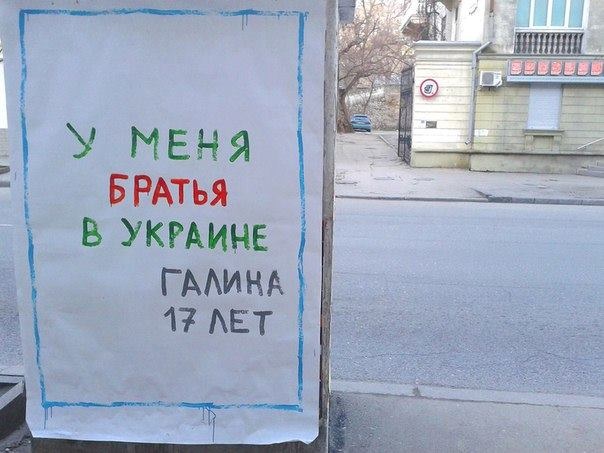 У МЕНЯ
БРАТЬЯ
В УКРАИНЕ
ГАЛИНА
17 ЛЕТ